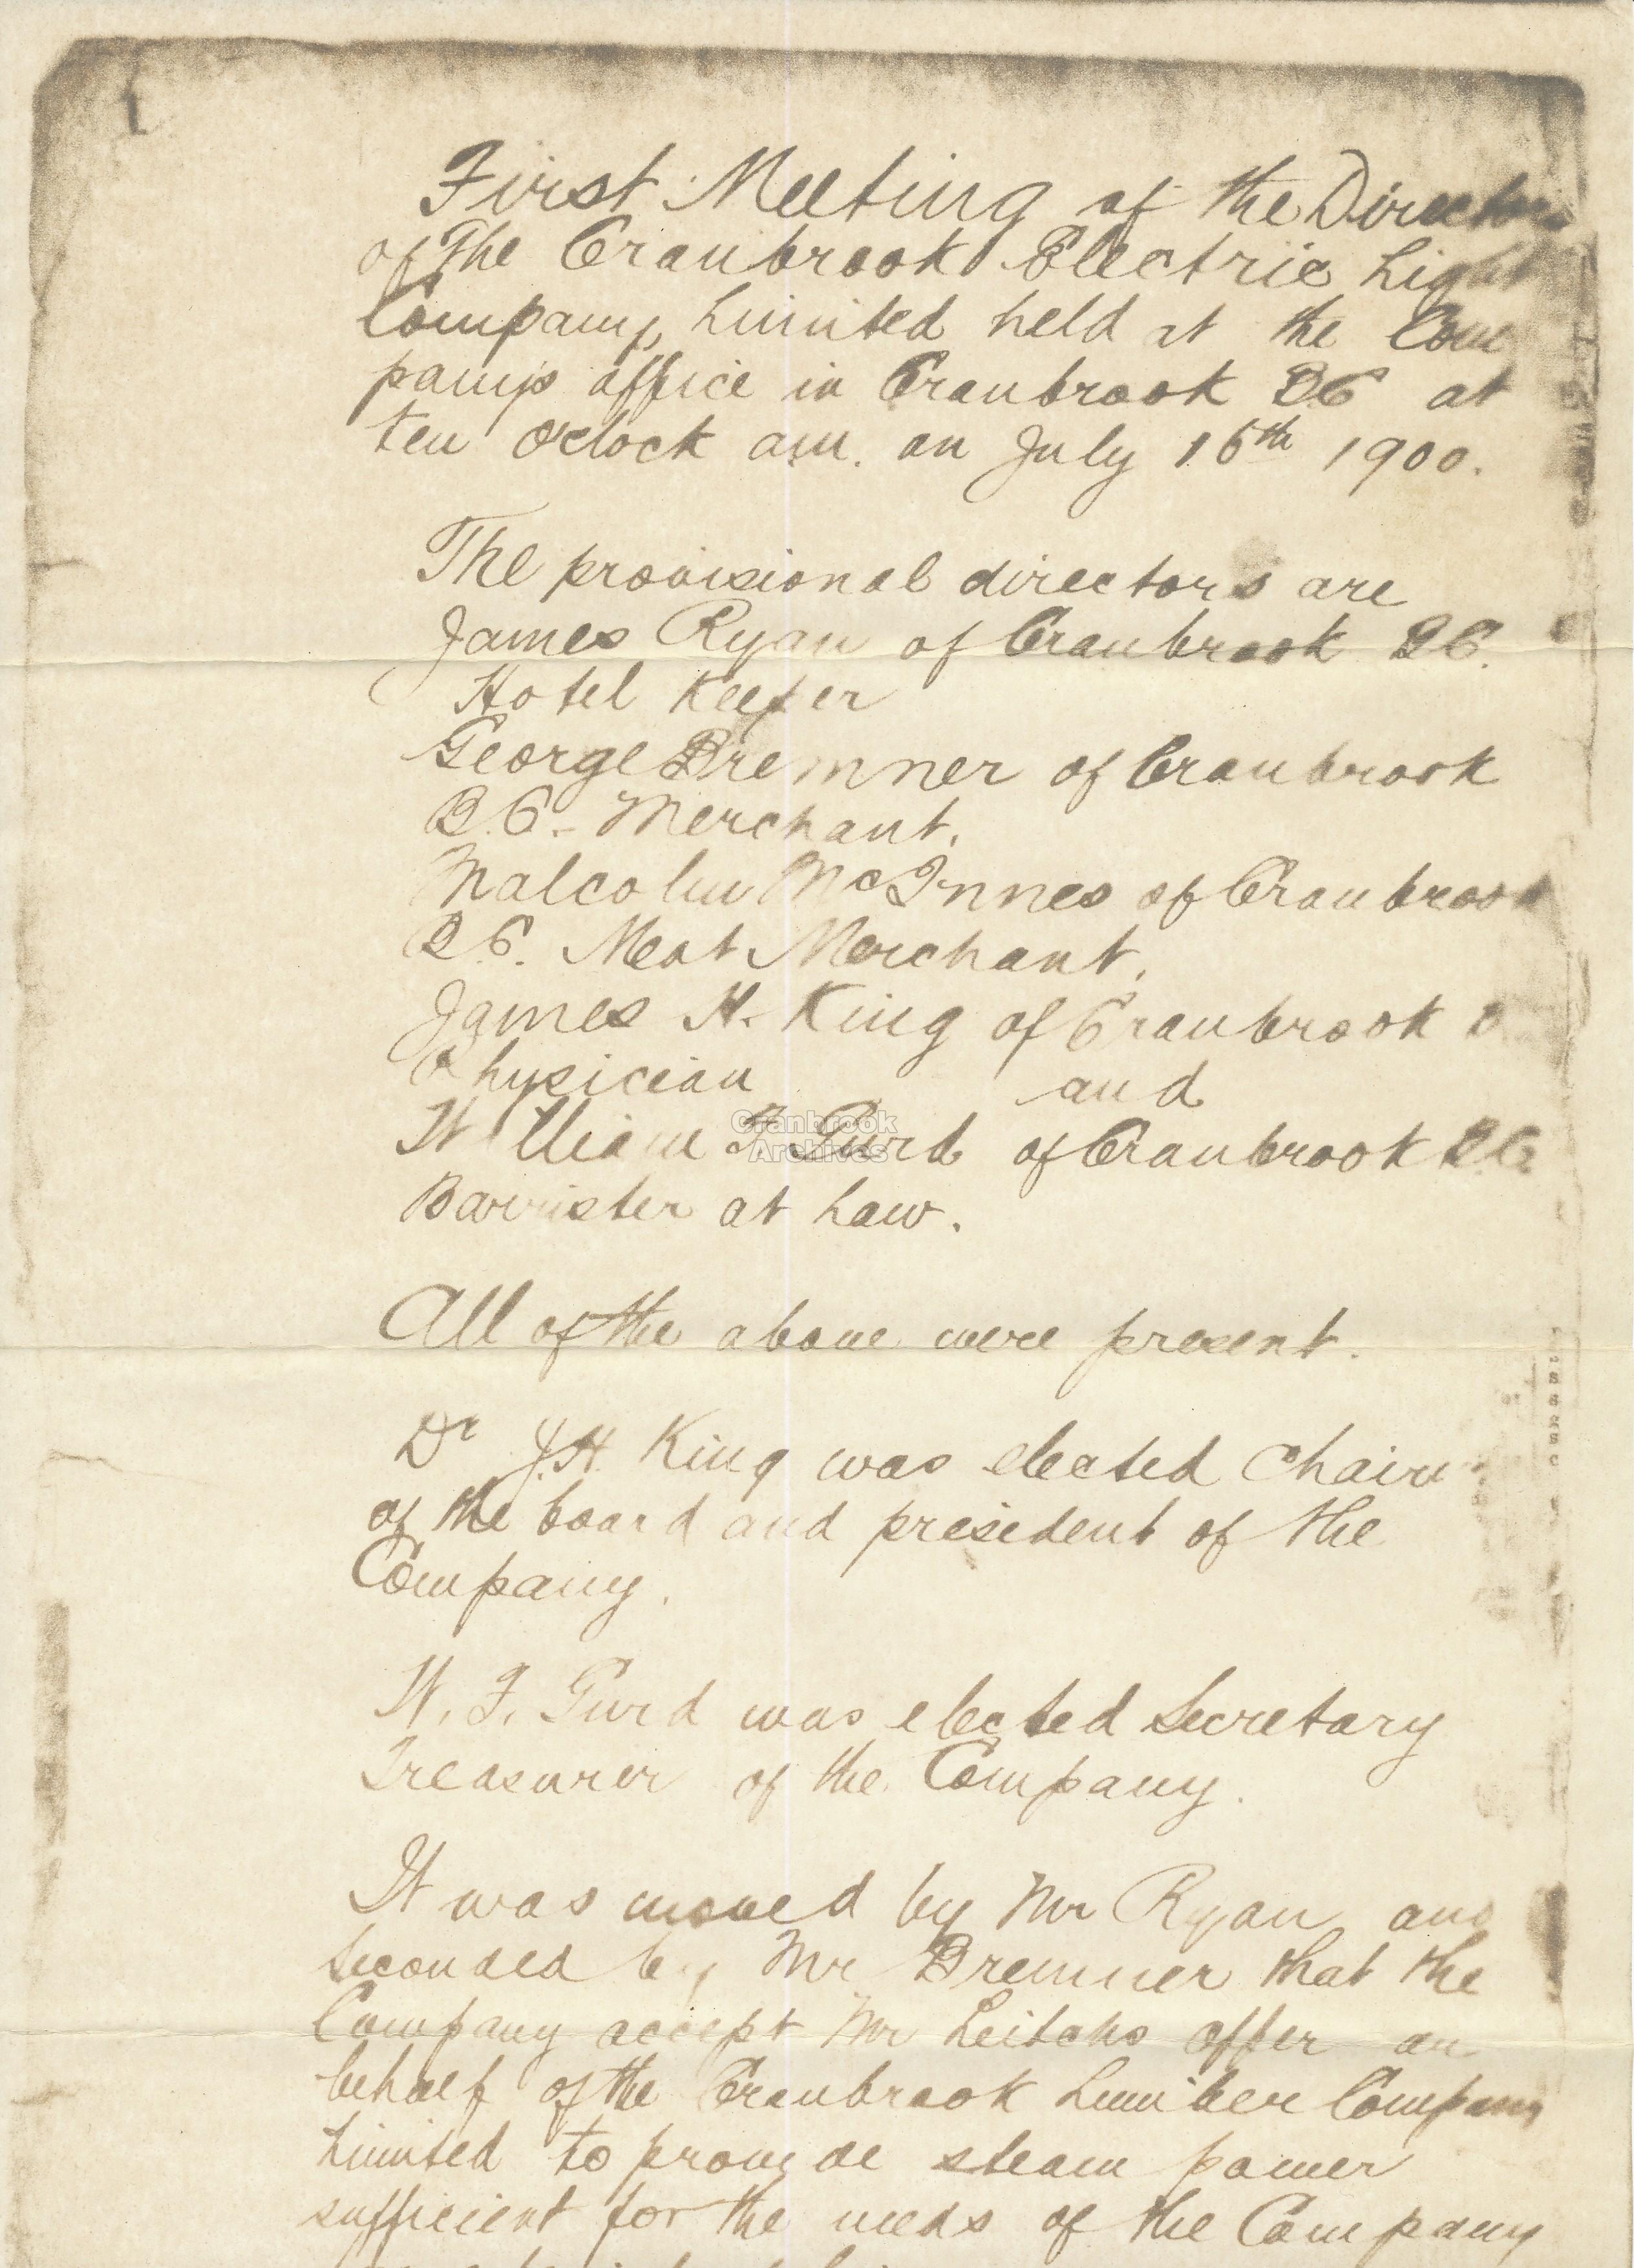 First Meeting of the Directors
of The Cranbrook Electric Light
Company, Limited held at the Com
pany's office in Cranbrook BC at
ten O'clock a.m. on July 16th 1900.
The provisional directors are
James Ryan of Cranbrook BC.
Hotel Keeper
George Bremner of Cranbrook
B.C. - Merchant.
Malcolm McInnes of Cranbrook
B.C. Meat Merchant.
James H. King of Cranbrook
Physician and
William F Gurd of Cranbrook BC
Barrister at Law.
Cranbrook
Archives
All of the above were present.
Dr J.H. King was elected Chair
of the board and president of the
Company.
W. F. Gurd was elected Secretary
Treasurer of the Company.
It was moved by Mr Ryan and
seconded by Mr Bremner that the
Company accept Mr Leitchs offer on
behalf of the Cranbrook Lumber Company
Limited to provide steam power
sufficient for the needs of the Company